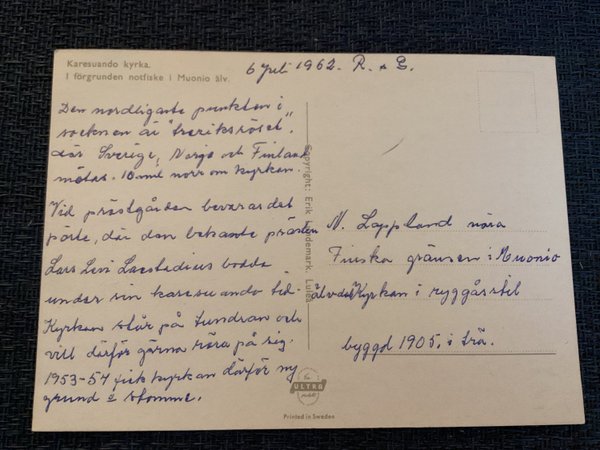 Karesuando kyrka.
I förgrunden notfiske i Muonio älv.
6 Juli 1962. R. & G.
Den nordligaste punkten i
socknen är "treriksröset",
där Sverige, Norge och Finland
mötas. 10 mil norr om kyrkan.
Vid prästgården bevarar det
pörte, där den bekante prästen
Lars Levi Laestadius bodde
under sin karesuando tid.
Kyrkan står på tundran och
vill därför gärna röra på sig.
1953-54 fick kyrkan därför ny
grund o stomme.
Copyright: Erik Lindemark, Luleå
N. Lappland nära
Finska gränsen i Muonio
älvdal Kyrkan i ryggåsstil
byggd 1905, i trä.
ULTRA
Printed in Sweden